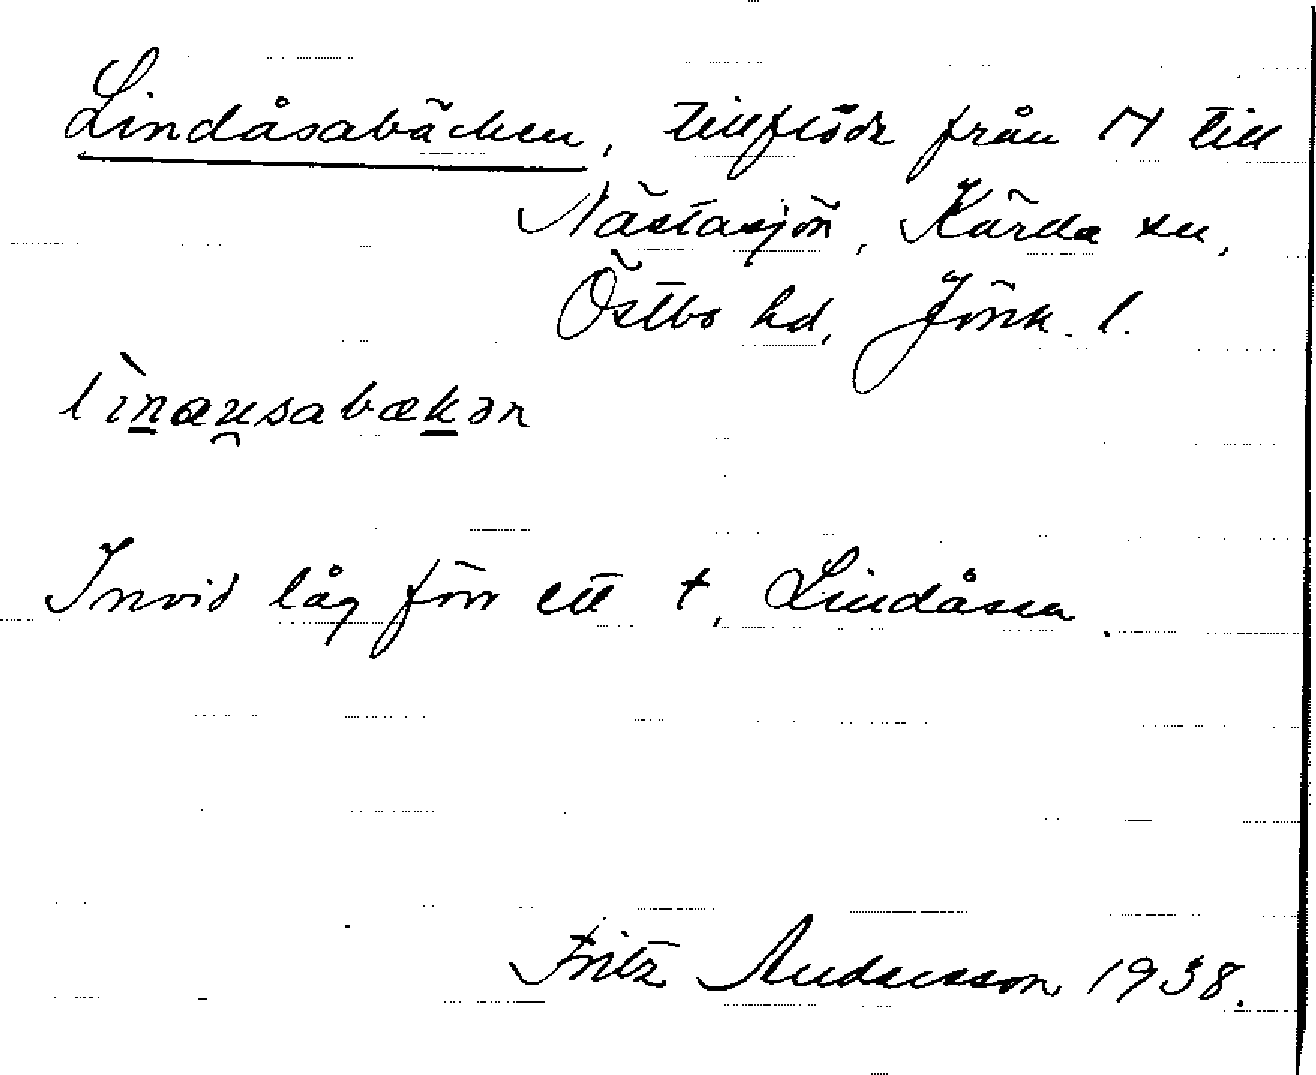 Lindåsabäcken, tillflöde från N till
Nästasjön, Kärda sn,
Östbo hd, Jönk. l.
Invid låg förr ett t, Lindåsen.
Fritz Andersson 1938.